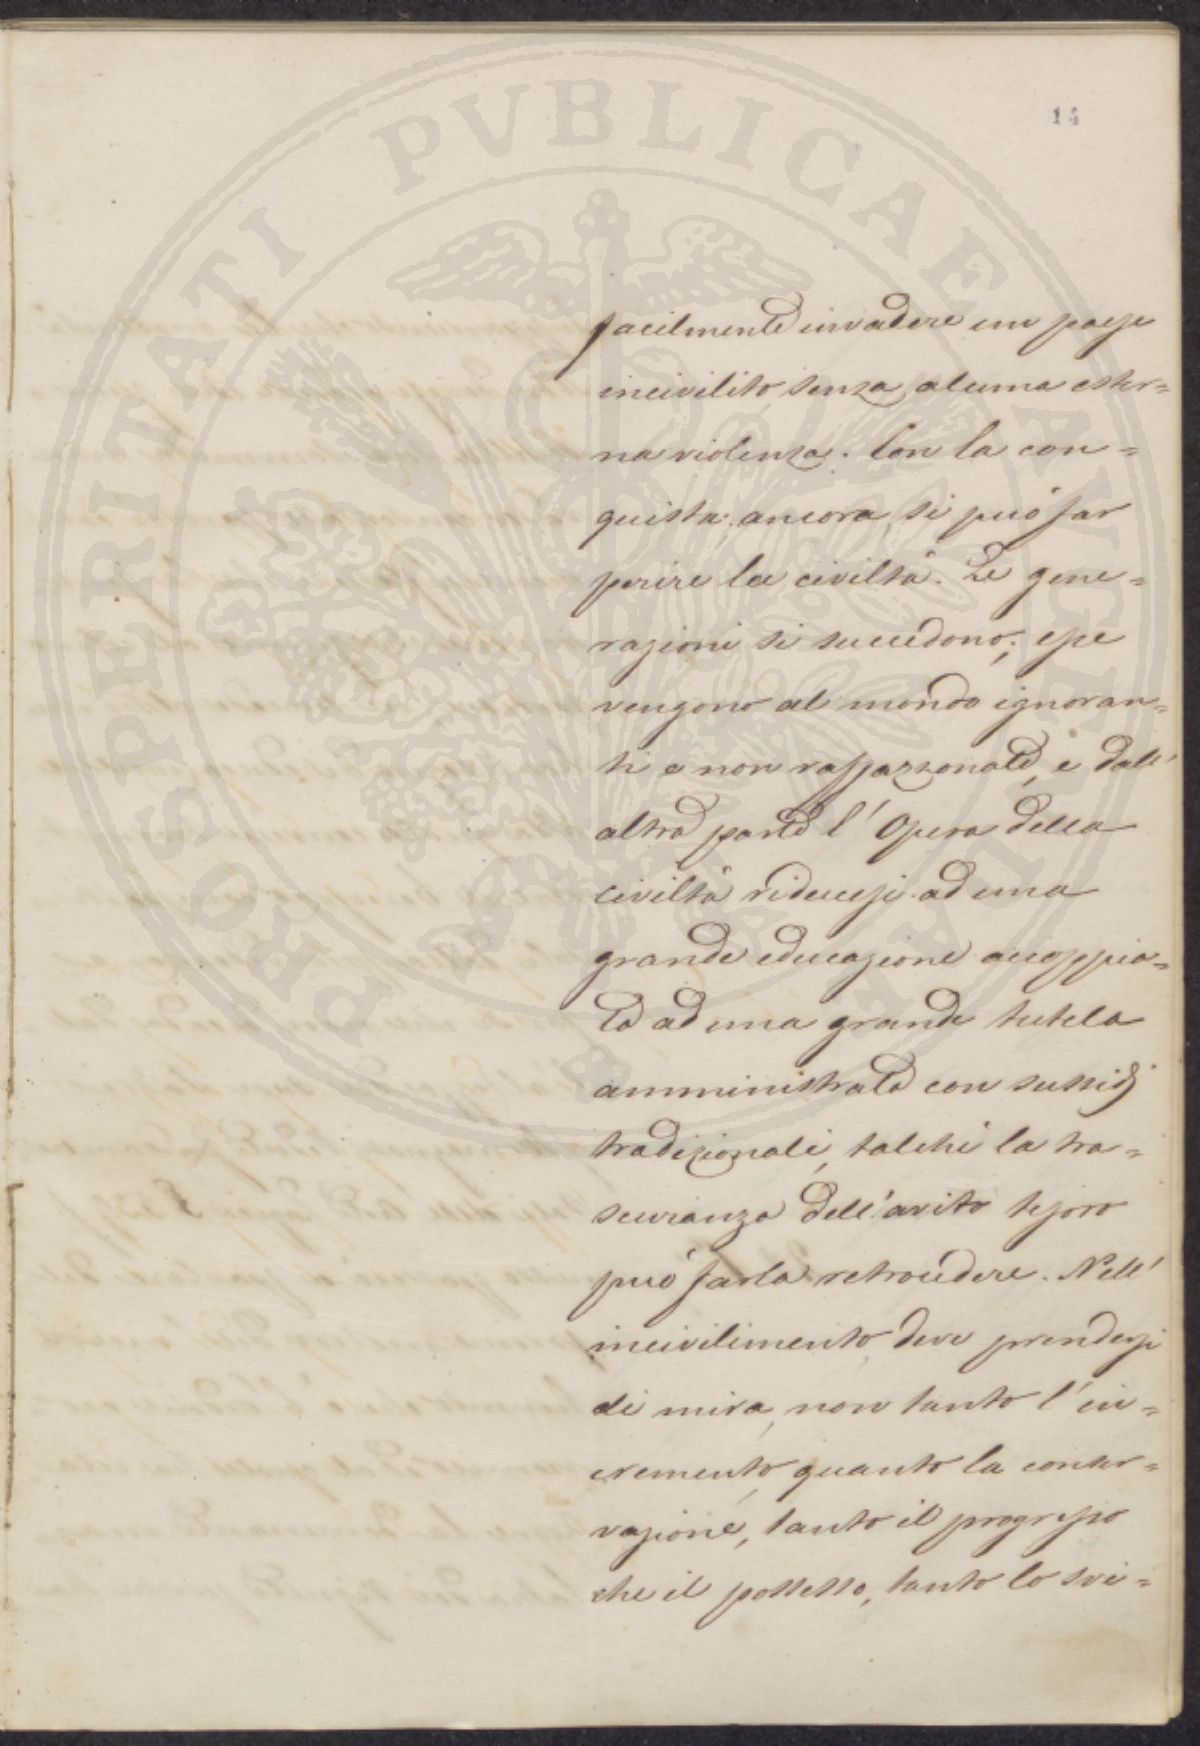 PROSPERITATI PUBLICAE AUGENDAE
14
facilmente invadere un paese
incivilito, senza alcuna ester=
na violenza. Con la con=
quista ancora si può far
perire la civiltà. Le gene=
razioni si succedono; esse
vengono al mondo ignoran=
ti e non rassazonate, e dall'
altra parte l'Opera della
civiltà riducesi ad una
grande educazione accoppia=
ta ad una grande tutela
amministrata con sussidj
tradizionali, talchè la tra=
scuranza dell'avito tesoro
può farla retrocedere. Nell'
incivilimento, deve prendersi
di mira, non tanto l'in=
cremento, quanto la conser=
vazione, tanto il progresso
che il possesso, tanto lo svi=